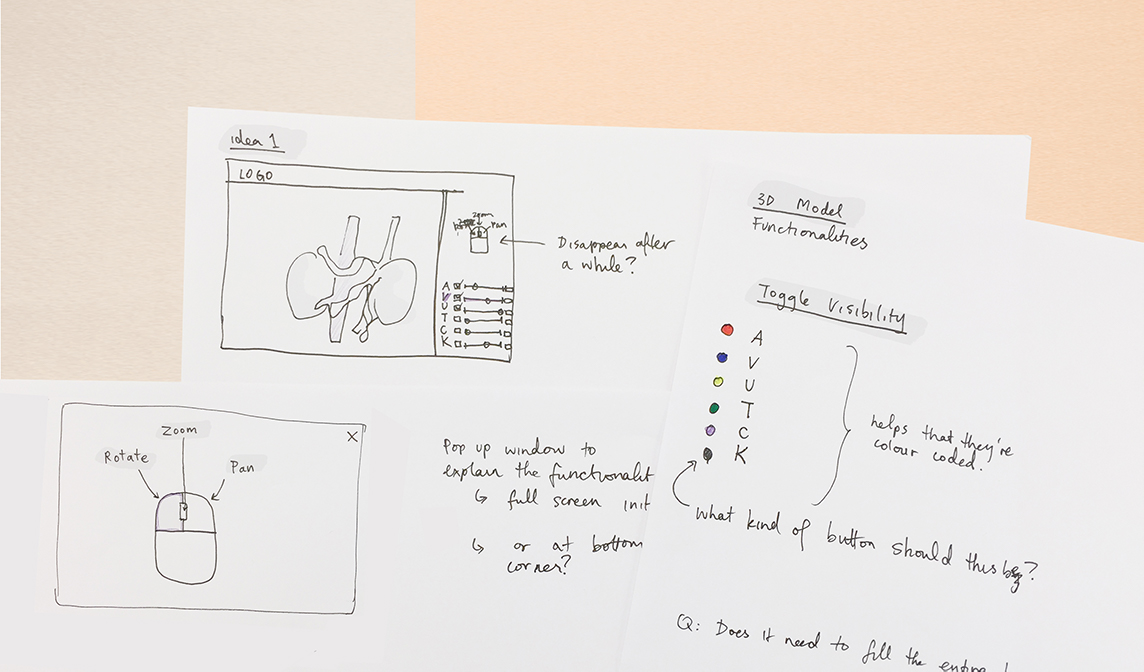 idea 1
LOGO
Zoom
Pan
Disappear after
a while?
A
V
U
T
C
K
3D Model
Functionalities
Toggle Visibility
A
V
U
T
C
K
helps that they're
colour coded.
what kind of button should this be?
Q: Does it need to fill the entire
Zoom
Rotate
Pan
X
Pop up window to
explain the functionalit
↳ full screen init
↳ or at bottom
corner?